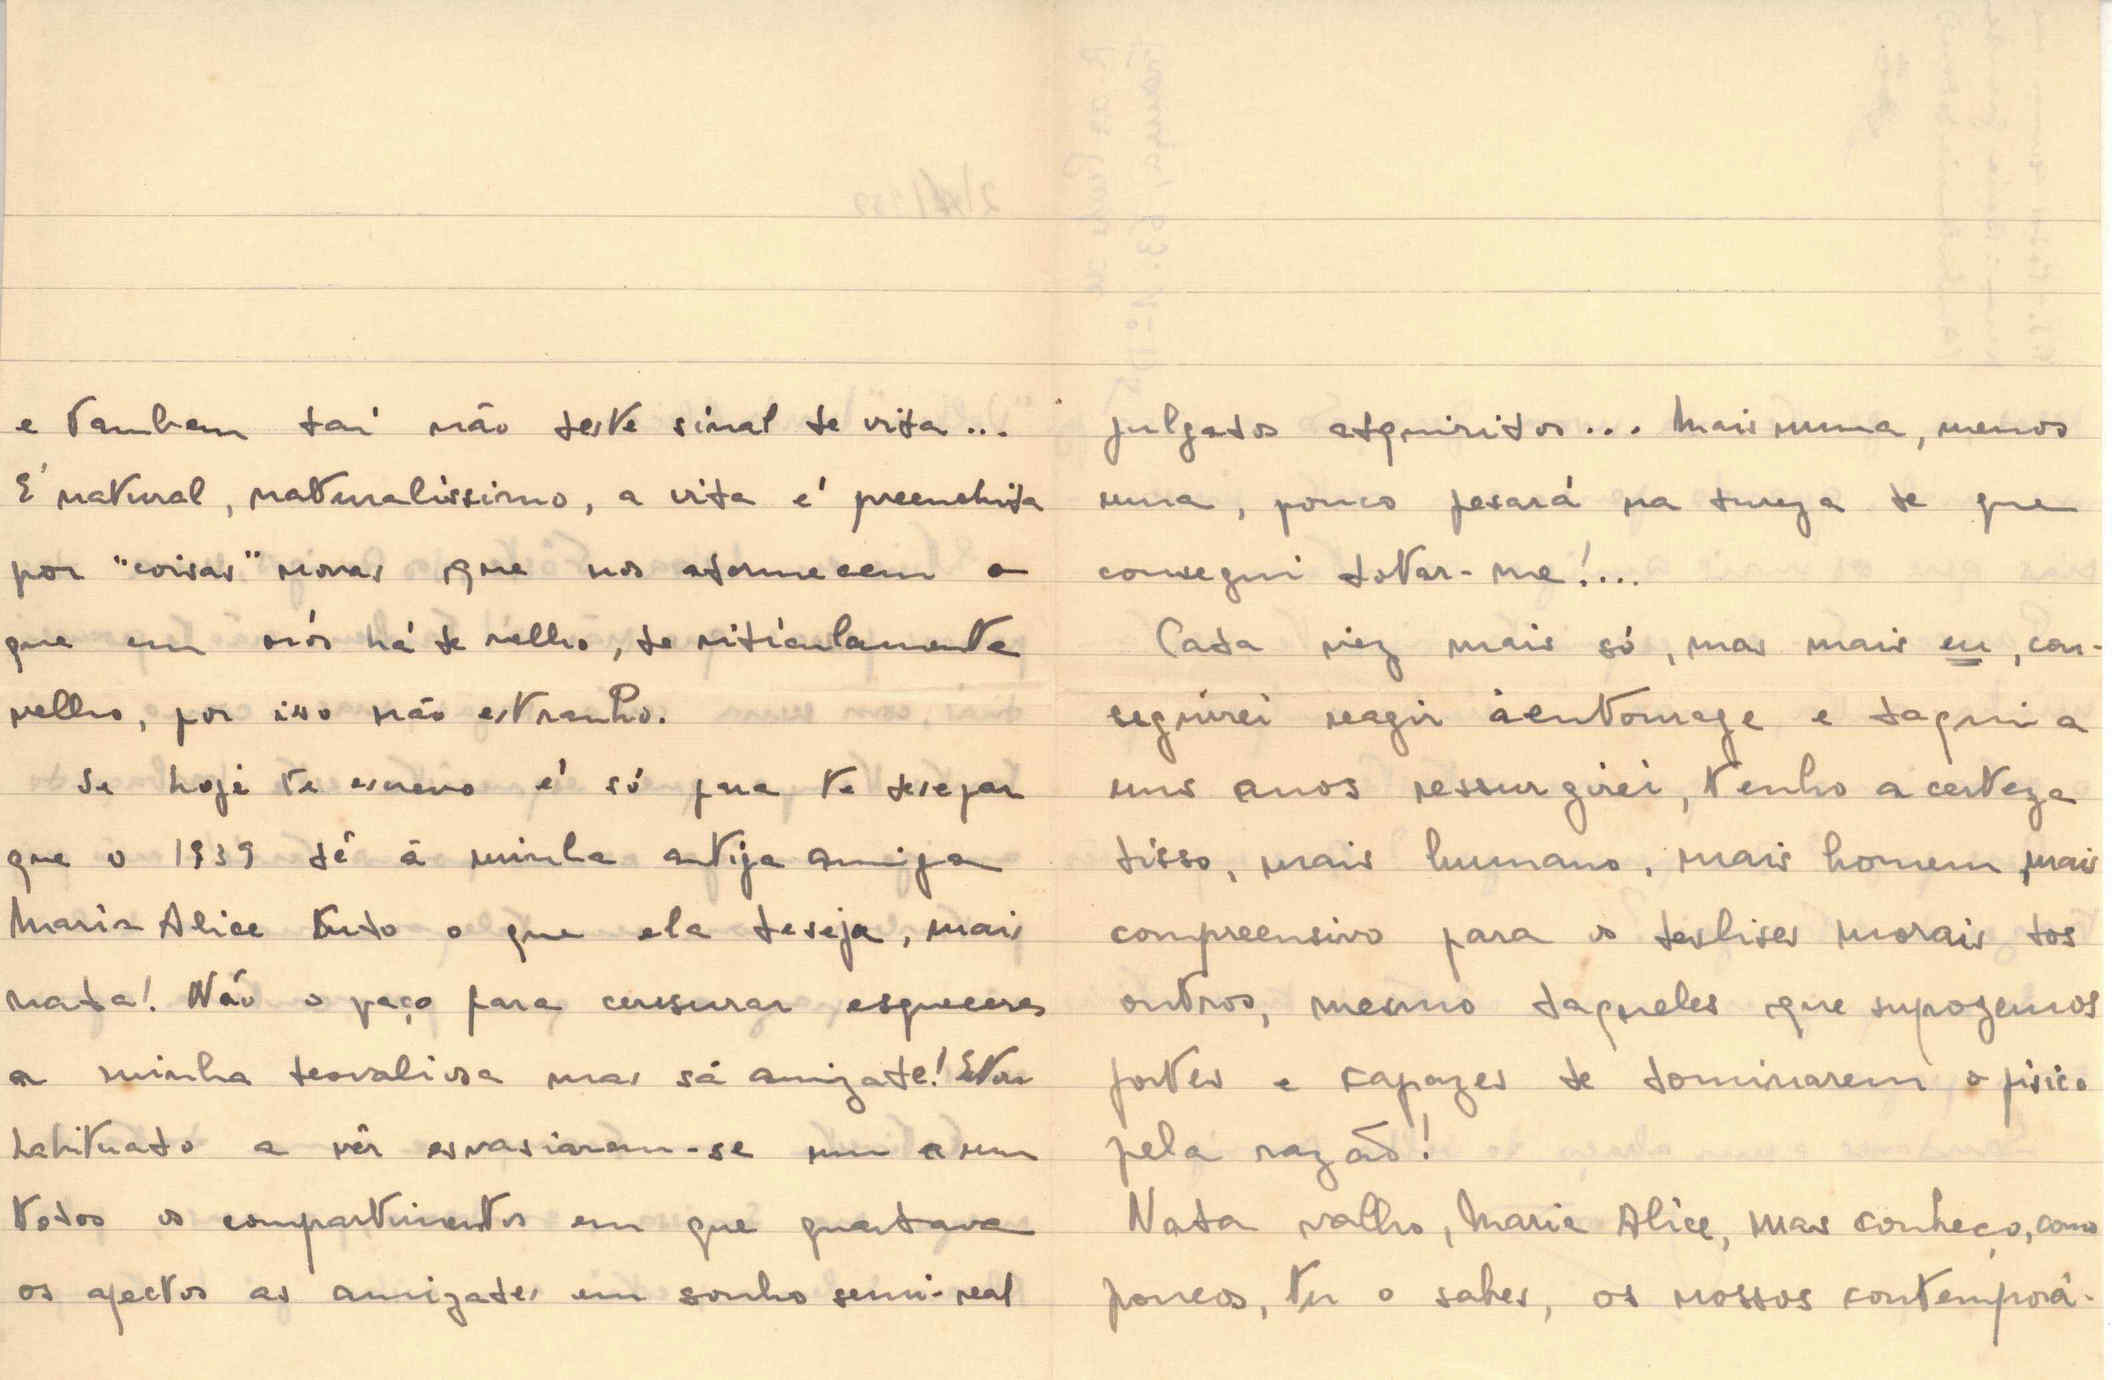 e tambem daí não deste sinal de vida...
É natural, naturalissimo, a vida é preenchida
por "coisas" novas que nos adormecem o
que em nós há de velho, de ridículamente
velho, por isso não estranho.
Se hoje te escrevo é só para te desejar
que o 1939 dê á minha antiga amiga
Maria Alice tudo o que ela deseja, mais
nada! Não o faço para censurar esqueceres
a minha desvaliosa mas sã amizade! Estou
habituado a vêr esvasiarem-se um a um
todos os compartimentos em que guardava
os afectos as amizades em sonho semi-real
julgados adquiridos... Mais uma, menos
uma, pouco pesará na dureza de que
consegui dotar-me!...
Cada vez mais só, mas mais eu, con-
seguirei reagir á entourage e daqui a
uns anos ressurgirei, tenho a certeza
disso, mais humano, mais homem, mais
compreensivo para os deslises morais dos
outros, mesmo daqueles que supozemos
fortes e capazes de dominarem o fisico
pela razão!
Nada valho, Maria Alice, mas conheço, como
poucos, tu o sabes, os nossos contemporâ-